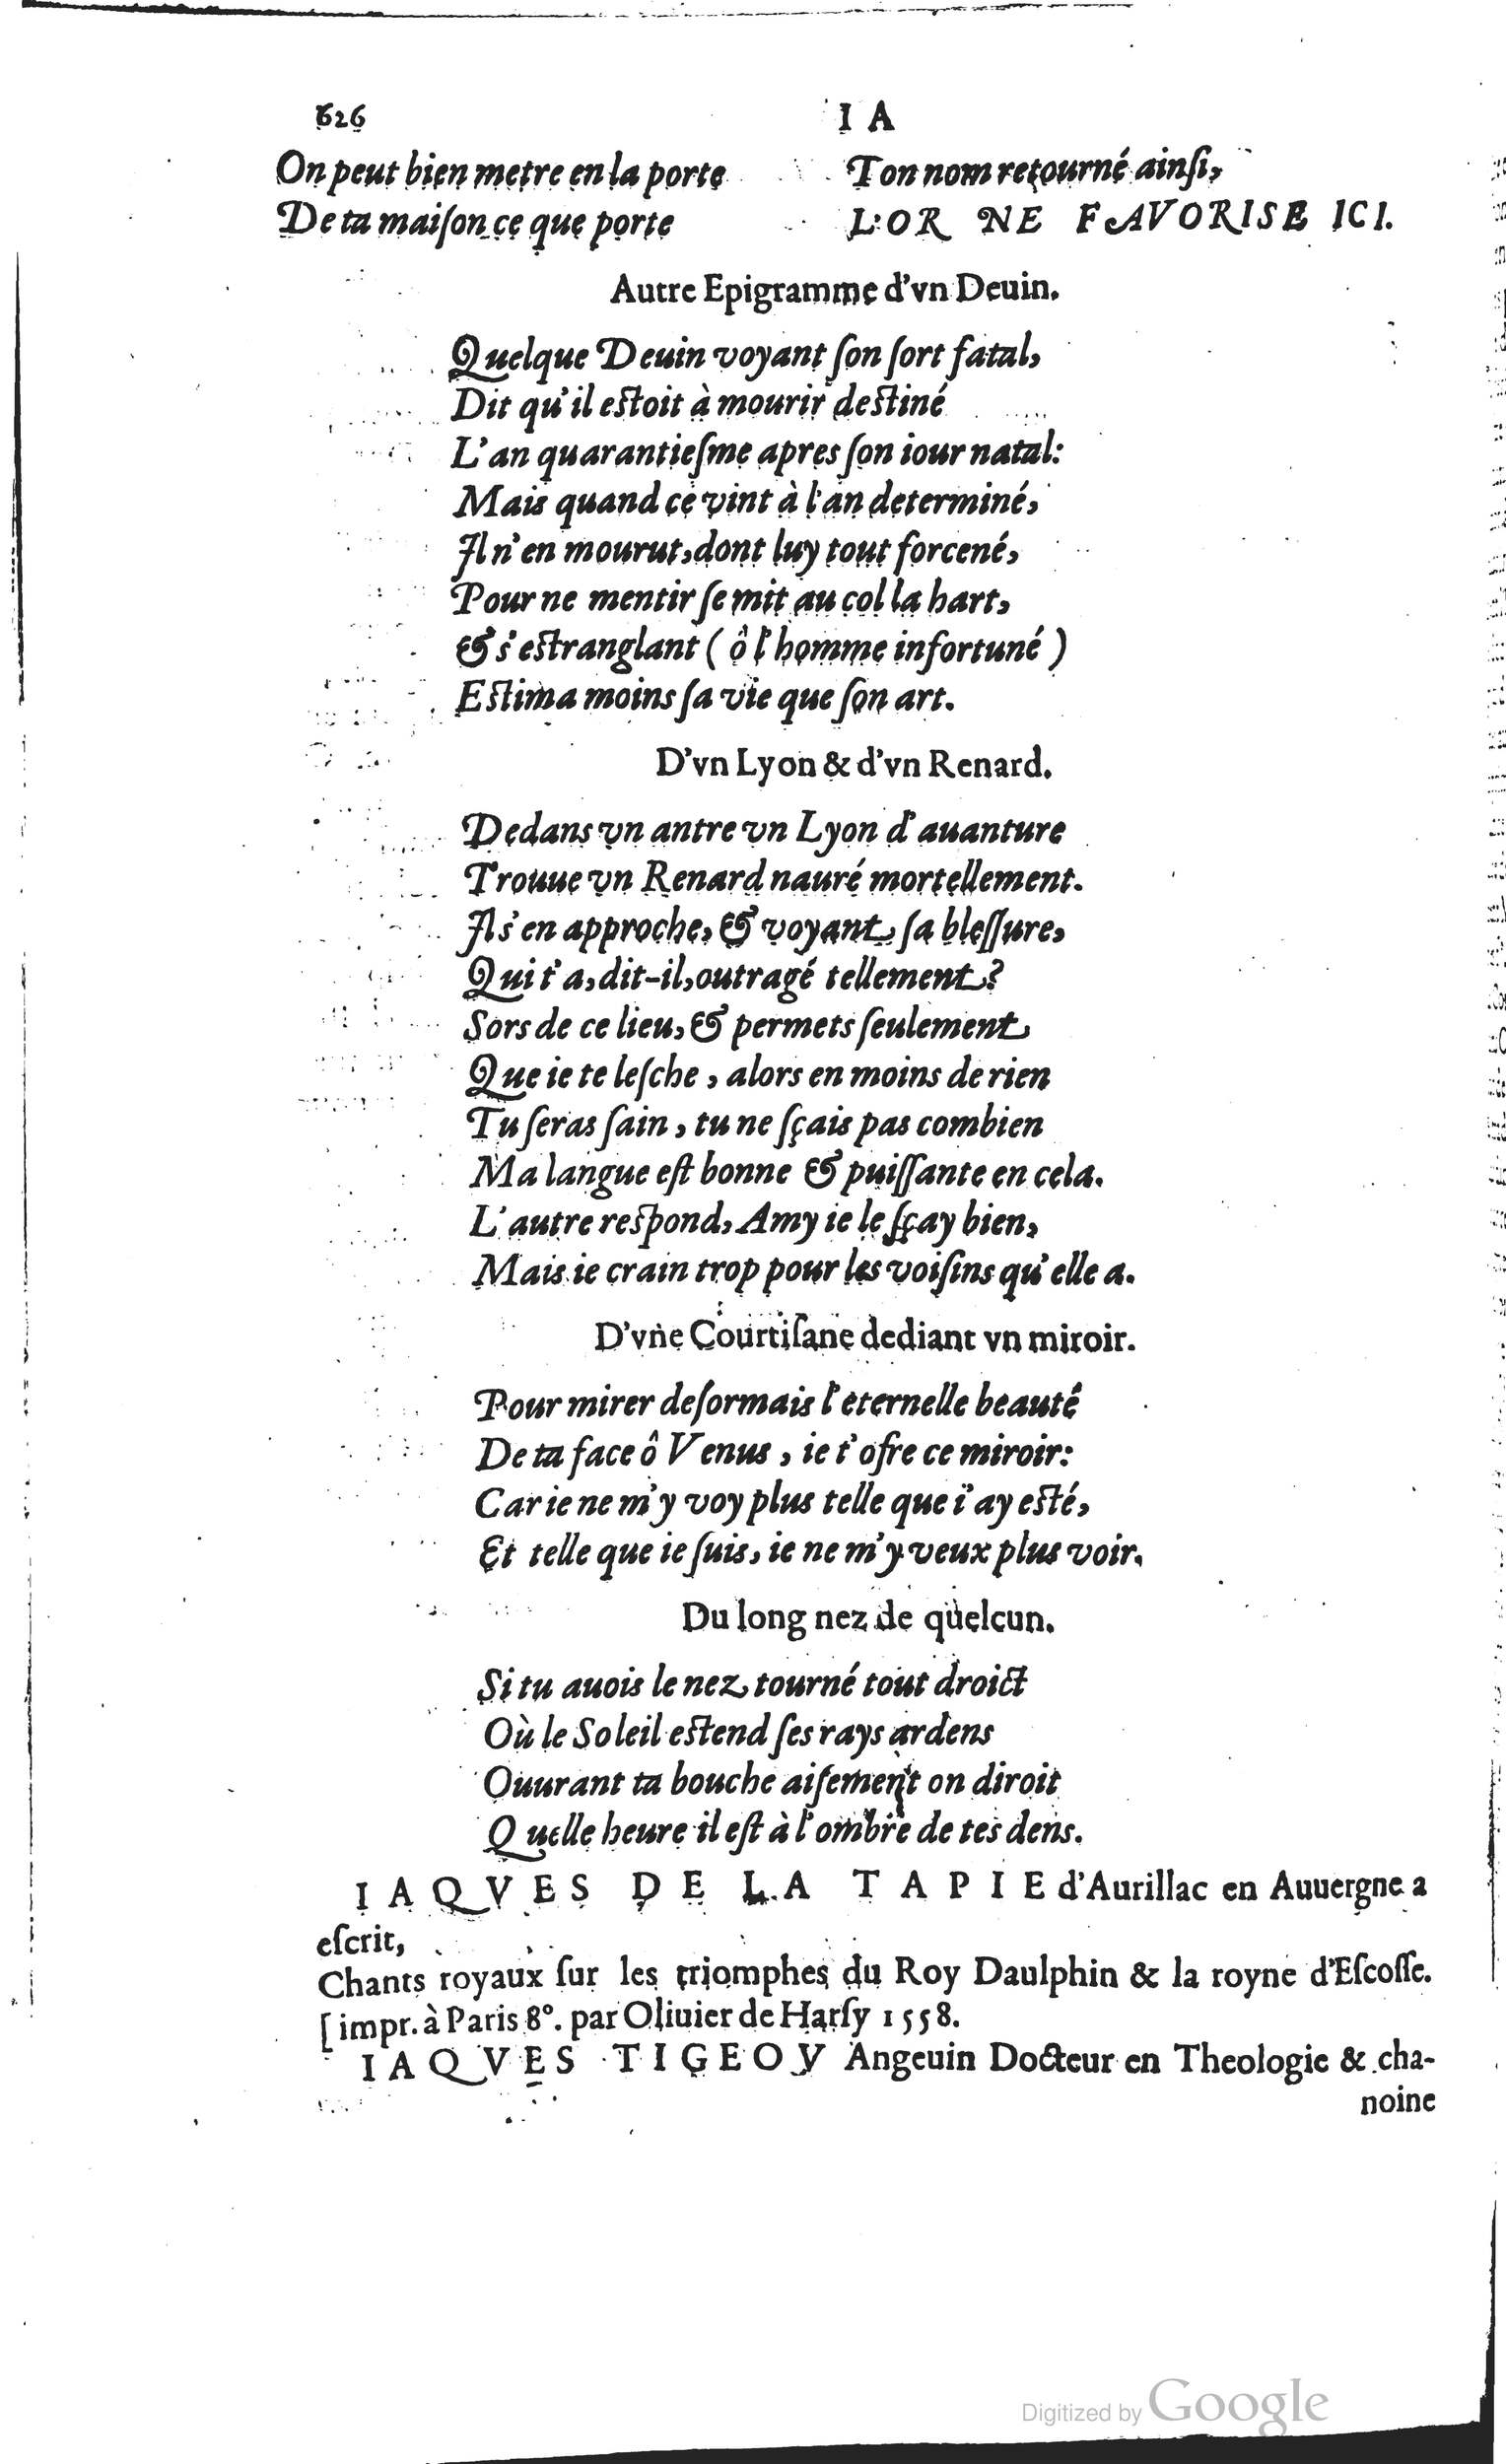 626
I A
On peut bien metre en la porte
De ta maiſon ce que porte
Ton nom retourné ainſi,
L'OR NE FAVORISE ICI.
Autre Epigramme d'vn Deuin.
Quelque Deuin voyant ſon ſort fatal,
Dit qu'il eſtoit à mourir deſtiné
L'an quarantieſme apres ſon iour natal:
Mais quand ce vint à l'an determiné,
Il n'en mourut, dont luy tout forcené,
Pour ne mentir ſe mit au col la hart,
& s'eſtranglant (ô l'homme infortuné)
Eſtima moins ſa vie que ſon art.
D'vn Lyon & d'vn Renard.
Dedans vn antre vn Lyon d'auanture
Trouue vn Renard nauré mortellement.
Il s'en approche, & voyant ſa bleſſure,
Qui t'a, dit-il, outragé tellement?
Sors de ce lieu, & permets ſeulement
Que ie te leſche, alors en moins de rien
Tu ſeras ſain, tu ne ſçais pas combien
Ma langue eſt bonne & puiſſante en cela.
L'autre reſpond, Amy ie le ſçay bien,
Mais ie crain trop pour les voiſins qu'elle a.
D'vne Courtiſane dediant vn miroir.
Pour mirer deſormais l'eternelle beauté
De ta face ô Venus, ie t'ofre ce miroir:
Car ie ne m'y voy plus telle que i'ay eſté,
Et telle que ie ſuis, ie ne m'y veux plus voir.
Du long nez de quelcun.
Si tu auois le nez tourné tout droict
Où le Soleil eſtend ſes rays ardens
Ouurant ta bouche aiſement on diroit
Quelle heure il eſt à l'ombre de tes dens.
IAQVES DE LA TAPIE d'Aurillac en Auuergne a
eſcrit,
Chants royaux ſur les triomphes du Roy Daulphin & la royne d'Eſcoſſe.
[impr. à Paris 8°. par Oliuier de Harſy 1558.
IAQVES TIGEOV Angeuin Docteur en Theologie & cha-
noine
Digitized by Google